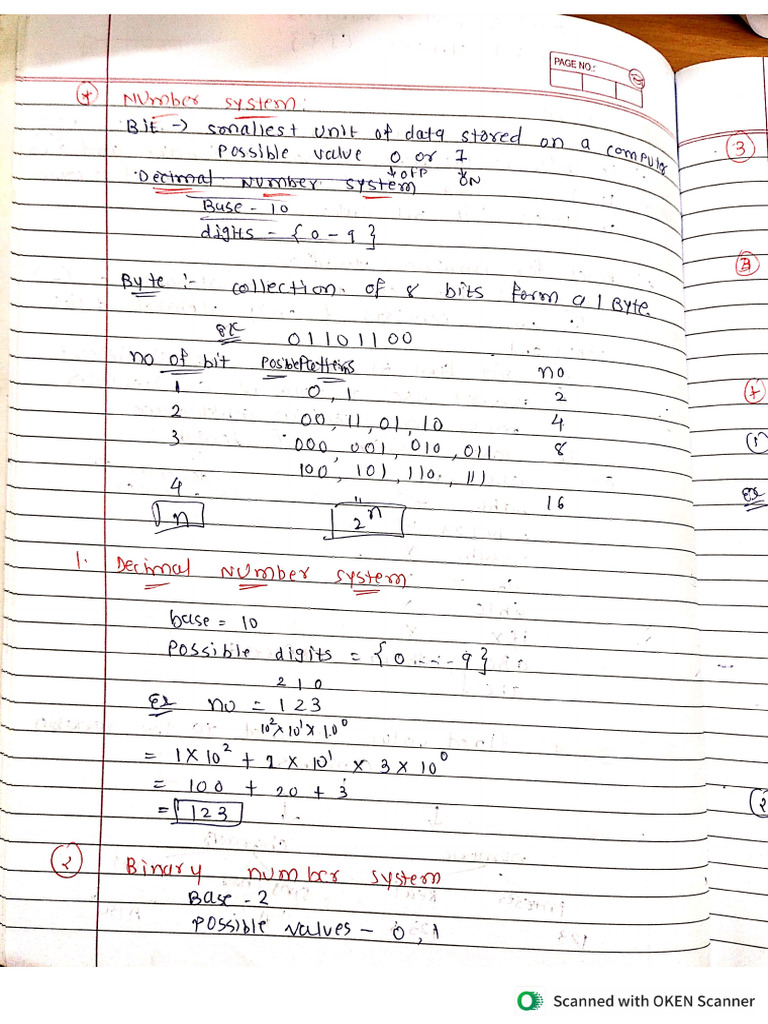 PAGE NO.:
* Number system:
Bit → smallest unit of data stored on a computer
possible value 0 or 1
↓off ↓ON
Decimal number system
Base - 10
digits - {0 - 9}
Byte :- collection of 8 bits form a 1 Byte.
Ex 01101100
no of bit possible patterns no
1 0, 1 2
2 00, 11, 01, 10 4
3 000, 001, 010, 011 8
100, 101, 110, 111
4 " 16
n 2^n
1. Decimal number system
base = 10
possible digits = {0 --- 9}
2 1 0
Ex no = 123
10^2 x 10^1 x 10^0
= 1 x 10^2 + 2 x 10^1 x 3 x 10^0
= 100 + 20 + 3
= 123
2 Binary number system
Base - 2
possible values - 0, 1
3
B
*
1
Ex
2
Scanned with OKEN Scanner